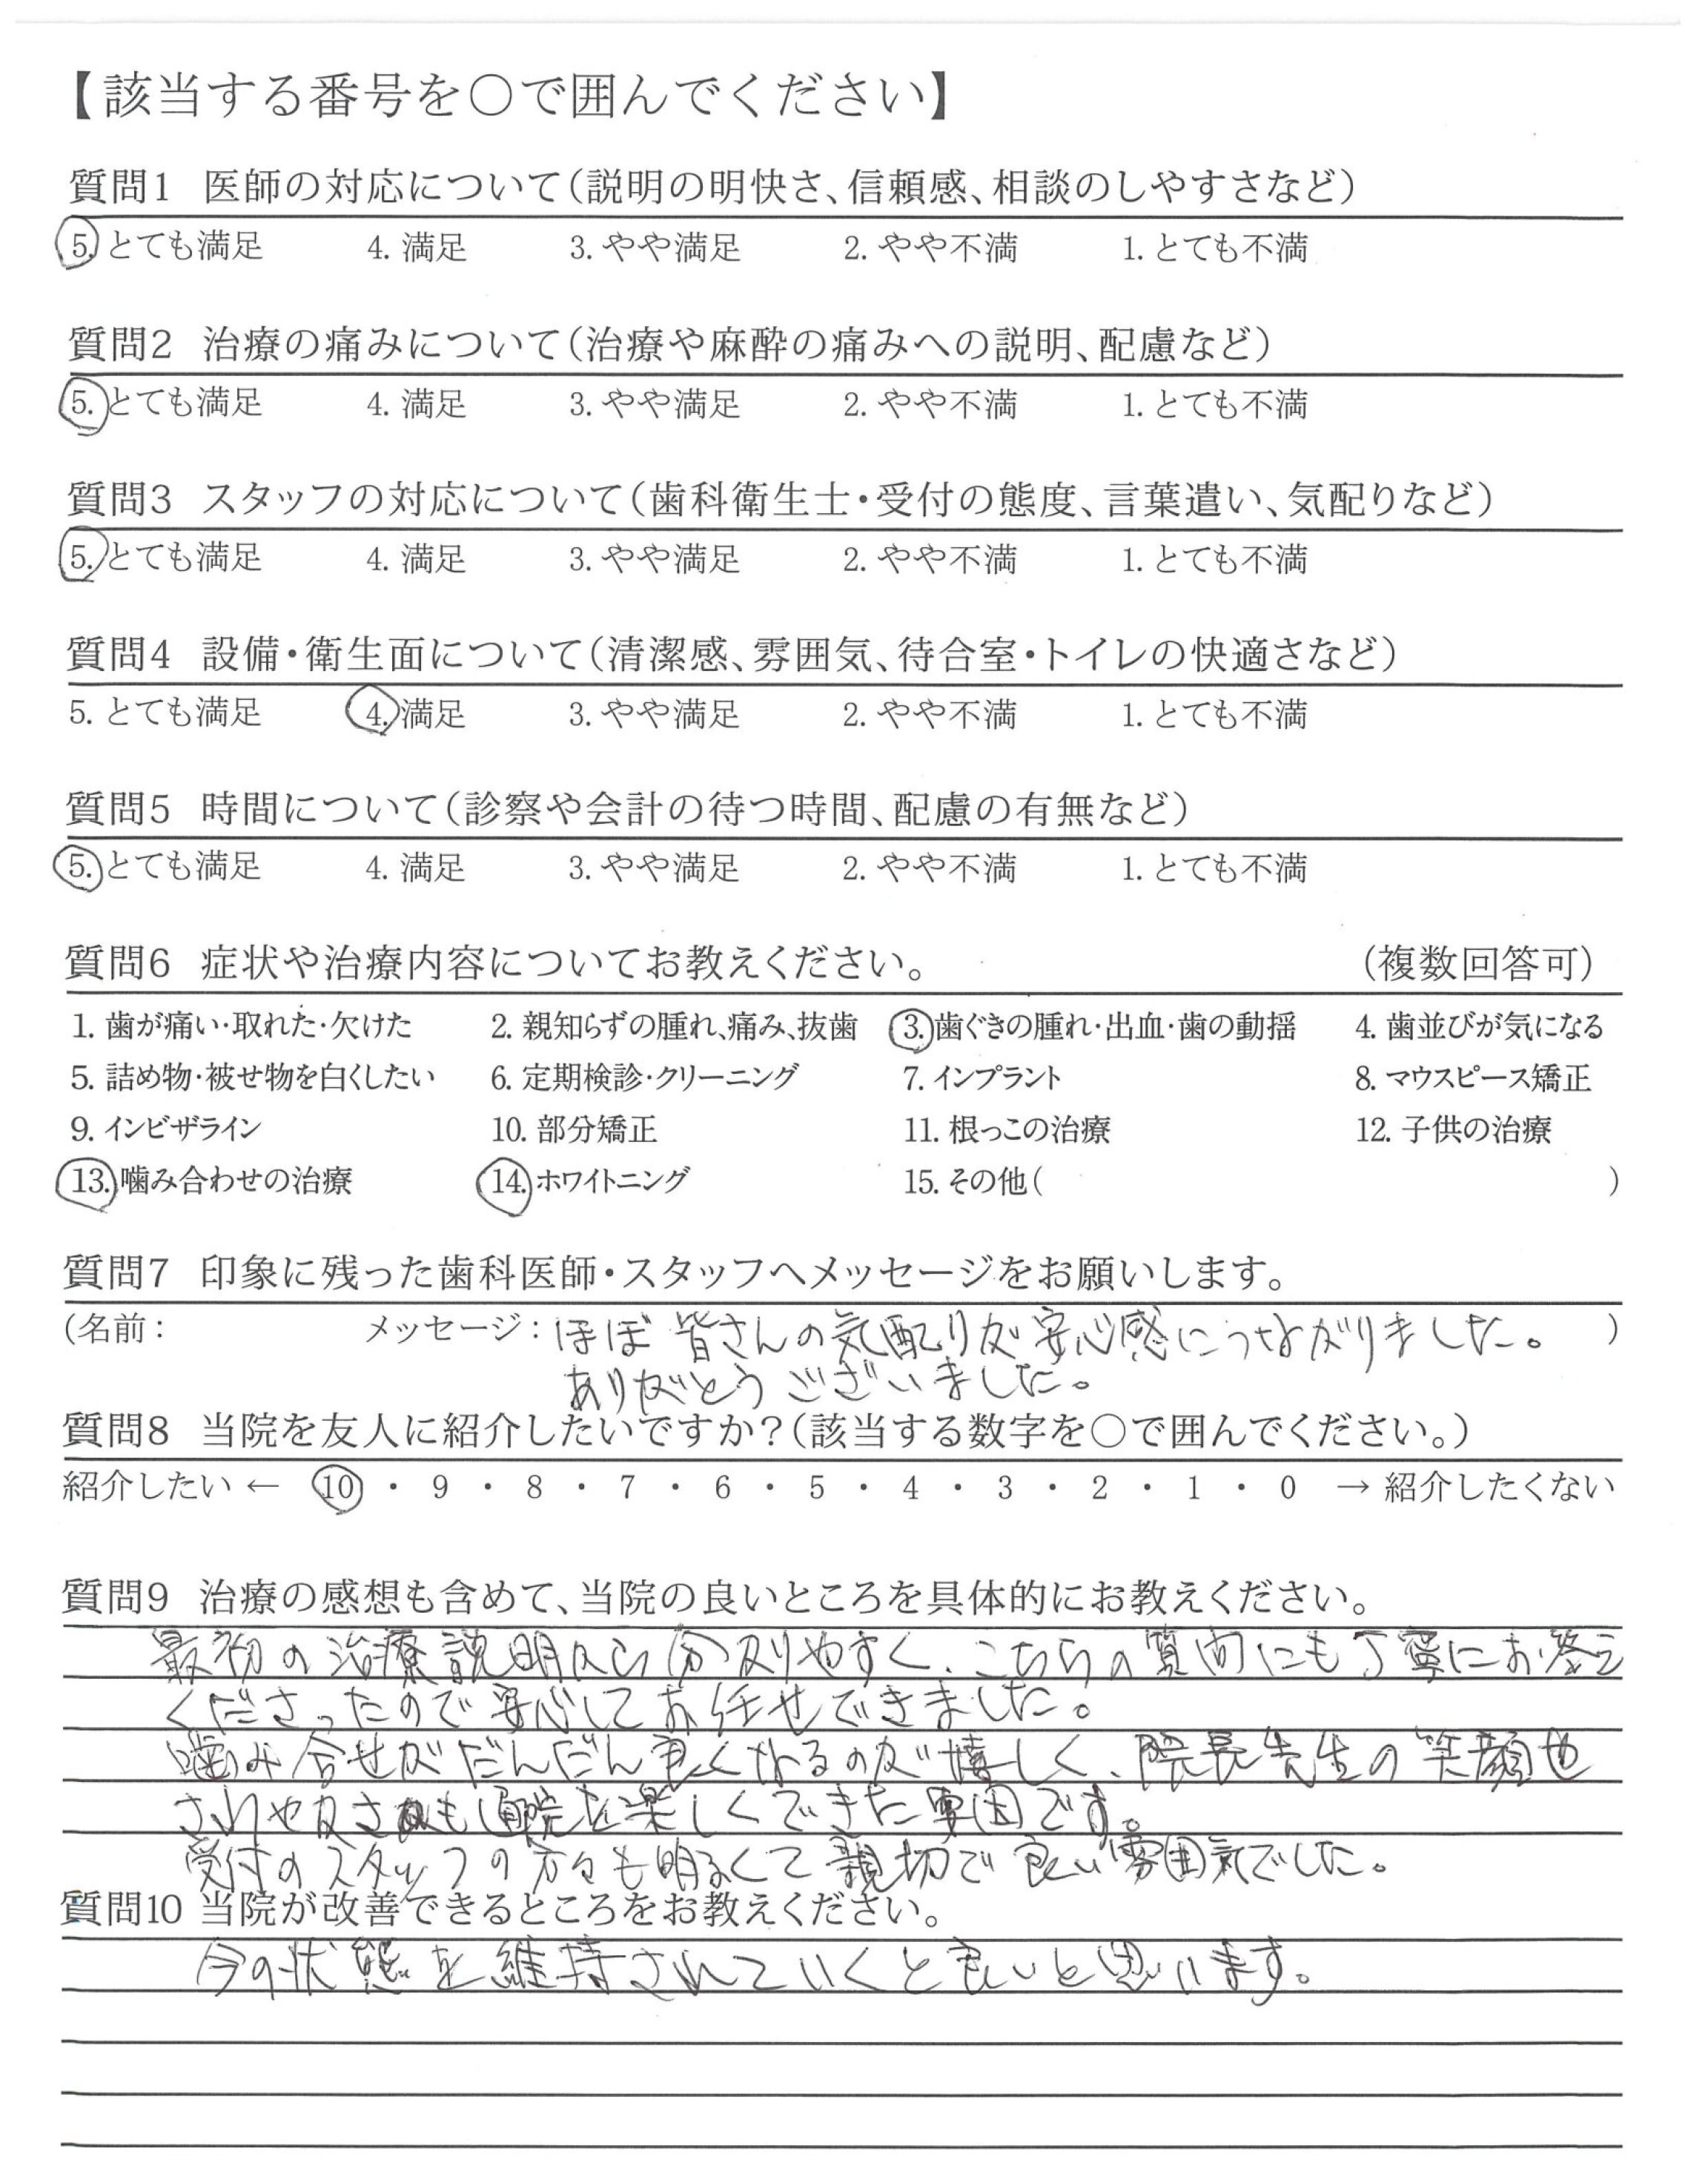 【該当する番号を○で囲んでください】
質問1 医師の対応について(説明の明快さ、信頼感、相談のしやすさなど)
5. とても満足 4. 満足 3. やや満足 2. やや不満 1. とても不満
質問2 治療の痛みについて(治療や麻酔の痛みへの説明、配慮など)
5. とても満足 4. 満足 3. やや満足 2. やや不満 1. とても不満
質問3 スタッフの対応について(歯科衛生士・受付の態度、言葉遣い、気配りなど)
5. とても満足 4. 満足 3. やや満足 2. やや不満 1. とても不満
質問4 設備・衛生面について(清潔感、雰囲気、待合室・トイレの快適さなど)
5. とても満足 4. 満足 3. やや満足 2. やや不満 1. とても不満
質問5 時間について(診察や会計の待つ時間、配慮の有無など)
5. とても満足 4. 満足 3. やや満足 2. やや不満 1. とても不満
質問6 症状や治療内容についてお教えください。 (複数回答可)
1. 歯が痛い・取れた・欠けた 2. 親知らずの腫れ、痛み、抜歯 3. 歯ぐきの腫れ・出血・歯の動揺 4. 歯並びが気になる
5. 詰め物・被せ物を白くしたい 6. 定期検診・クリーニング 7. インプラント 8. マウスピース矯正
9. インビザライン 10. 部分矯正 11. 根っこの治療 12. 子供の治療
13. 噛み合わせの治療 14. ホワイトニング 15. その他( )
質問7 印象に残った歯科医師・スタッフへメッセージをお願いします。
(名前: メッセージ: ほぼ皆さんの気配りが安心感につながりました。 )
ありがとうございました。
質問8 当院を友人に紹介したいですか?(該当する数字を○で囲んでください。)
紹介したい ← 10 ・ 9 ・ 8 ・ 7 ・ 6 ・ 5 ・ 4 ・ 3 ・ 2 ・ 1 ・ 0 → 紹介したくない
質問9 治療の感想も含めて、当院の良いところを具体的にお教えください。
最初の治療説明から分かりやすく、こちらの質問にも丁寧にお答え
くださったので安心してお任せできました。
噛み合せがだんだん良くなるのが嬉しく、院長先生の笑顔や
さわやかさも通院を楽しくできた要因です。
受付のスタッフの方々も明るくて親切で良い雰囲気でした。
質問10 当院が改善できるところをお教えください。
今の状態を維持されていくと良いと思います。